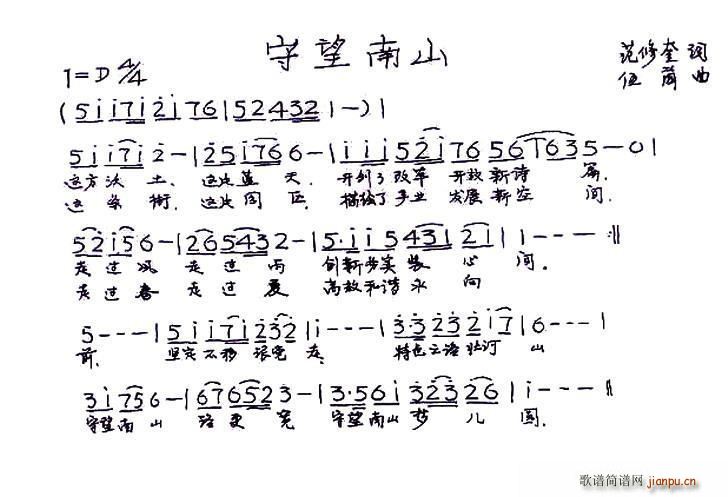 守望南山
范修奎 词
1=D 4/4
曲
(5 i i 7 i 2 i 7 6 | 5 2 4 3 2 1 —) |
5 i i 7 i 2 — | 2 5 i 7 6 6 — | i i i 5 2 i 7 6 5 6 1 7 6 3 5 — 0 |
这方沃土、这片蓝天、开创了改革开放新诗篇、
这条街、这片园区、描绘了事业发展新空间、
5 2 i 5 6 — | 2 6 5 4 3 2 — | 5 · i i 5 4 3 1 2 1 | 1 - - - :‖
走过风 走过雨 创新务实装心间.
走过春 走过夏 高效和谐永向
5 - - - | 5 i i 7 i 2 3 2 | i - - - | 3 3 2 3 2 i 7 | 6 - - - |
前. 坚定不移跟党走. 特色之路 山
3 i 7 5 6 — | 6 7 6 5 2 3 — | 3 · 5 6 i 3 2 3 2 6 | i - - - ‖
守望南山 路更宽 守望南山梦儿圆.
歌谱简谱网
jianpu.cn